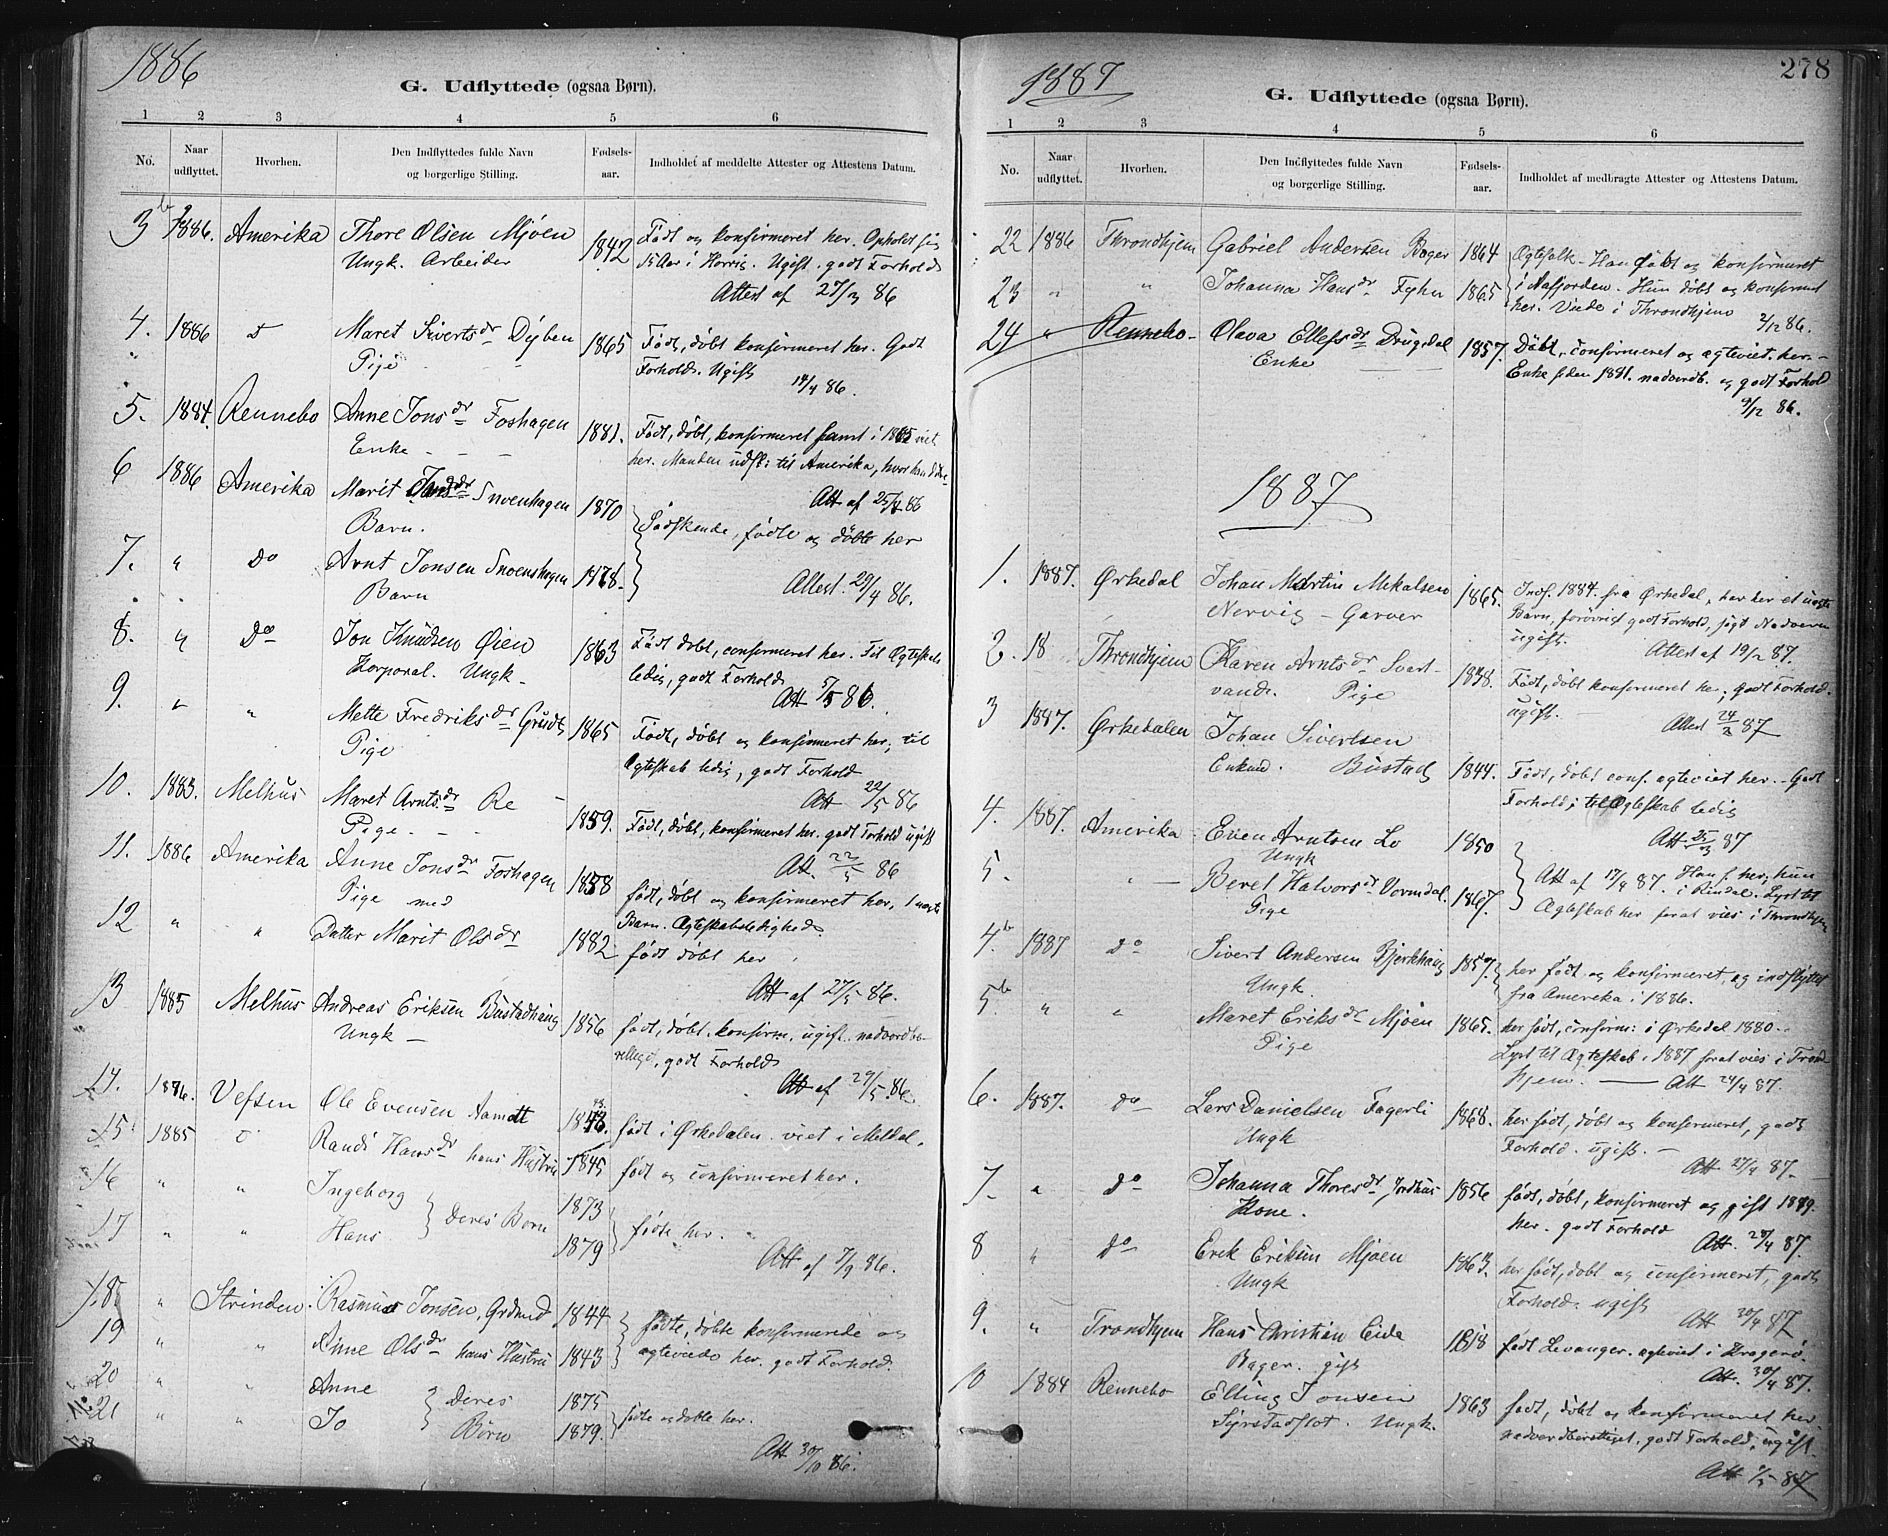 1886
G. Udflyttede (ogsaa Børn).
1 2 3 4 5 6
No. Naar udflyttet. Hvorhen. Den Indflyttedes fulde Navn og borgerlige Stilling. Fødsels-aar. Indholdet af meddelte Attester og Attestens Datum.
3b 1886. Amerika Thore Olsen Mjøen 1842 Født og konfirmeret her. Opholdt sig
Ungk. Arbeider 15 Aar i Horrig. Ugift. godt Forhold
Attest af 27/3 86
4. 1886 Maret Sivertsdr Dyben 1865 Født, døbt konfirmeret her. Godt
Pige Forhold. Ugift
14/4 86.
5. 1884. Rennebo Anne Jonsdr Foshagen 1881. Født, døbt, konfirmeret samt i 1865 viet
Enke her. Manden udfl: til Amerika, hvor han døde
Att af 25/4 86
6 1886 Amerika Marit Snoenhagen 1870 Sødskende, fødte og døbte her
Barn.
7. " Do Arnt Jonsen Snoenhagen 1878.
Barn Attest 29/4 86.
8. " Do Jon Knudsen Øien 1863 Født døbt, confirmeret her. Til Ægteskab
Korporal. Ungk. ledig, godt Forhold
Att 5/5 86.
9. " " Mette Fredriksdr Grudt 1865 Født, døbt og konfirmeret her, til
Pige Ægteskab ledig, godt Forhold
Att 22/5 86
10. 1883. Melhus Maret Arntsdr Re 1859. Født, døbt, konfirmeret her. godt Forhold ugift
Pige. Att. 22/5 86
11. 1886 Amerika Anne Jonsdr Foshagen 1858 født, døbt og konfirmeret her, 1 uægte
Pige med Barn. Ægteskabsledighed.
12 " " Datter Marit Olsdr 1882 født døbt her
Att af 27/5 86.
13 1885 Melhus Andreas Eriksen Bustadhaug 1856 født, døbt, konfirm. ugift. nadverdbe-
Ungk rettiget, godt Forhold
Att af 29/5 86.
14. 1876. Vefsen Ole Evensen Aamott født i Ørkedalen. viet i Meldal.
15 1885 Randi Hansdr hans Hustru 1845 født og confirmeret her.
16 " " Ingeborg 1873
17 " " Hans } Deres Børn 1879 } fødte her.
Att af 7/9 86.
18 " Strinden Rasmus Jonsen, Grdmd 1844 fødte, døbte konfirmerede og
19 " " Anne Olsdr hans Hustru 1843 ægteviede her. godt Forhold.
20 " " Anne } Deres 1875
21 " " Jo } Børn 1879. fødte og døbte her.
Att 30/10 86.
1887
278
G. Udflyttede (ogsaa Børn).
1 2 3 4 5 6
No. Naar udflyttet. Hvorhen. Den Indflyttedes fulde Navn og borgerlige Stilling. Fødsels-aar. Indholdet af medbragte Attester og Attestens Datum.
22 1886 Throndhjem Gabriel Andersen Bager 1864 Ægtefolk. Han født og konfirmeret
23 " " Johanna Hansdr Fyhn 1865 i Aafjorden. Hun døbt og konfirmert
her. Viede i Throndhjem 2/12 86.
24 " Rennebo Olava Ellefsdr Drugudal 1857. Døbt, confirmeret og ægteviet her.
Enke Enke siden 1881. nadverdb. og godt Forhold
9/12 86.
1887
1. 1887. Ørkedal Johan Martin Mekalsen 1865. Indf. 1884 fra Ørkedal, har her et uægte
Nervig - Garver Barn, forøvrigt godt Forhold, søgt Nadveren
ugift. Attest af 19/2 87.
2. 18 Throndhjem Karen Arntsdr Svart- 1838. Født, døbt konfirmeret her; godt Forhold.
vand. Pige ugift. Attest 24/2 87
3 1887. Ørkedalen Johan Sivertsen
Enkmd. Bustad 1844. Født, døbt conf. ægteviet her. Godt
Forhold; til Ægteskab ledig
Att. 25/3 87
4. 1887. Amerika Even Arntsen Lo 1850
Ungk Att af 17/4 87. Han f. her; hun
5. " Beret Halvorsdr Vormdal. 1867. i Rindal. Lyst til
Pige Ægteskab her forat vies i Throndhjem
4b 1887 do Sivert Andersen Bjerkhaug 1857. her født og konfirmeret, og indflyttet
Ungk. fra Amerika i 1886.
5b " " Maret Eriksdr Mjøen 1865. her født, confirm: i Ørkedal 1880.
Pige Lyst til Ægteskab i 1887 forat vies i Trond-
hjem. Att 24/4 87.
6. 1887. do Lars Danielsen Fagerli 1868. her født, døbt og konfirmeret, godt
Ungk Forhold. ugift.
Att 27/4 87.
7. " do Johanna Thoresdr Jordhus 1856 født, døbt, konfirmeret og gift 1879.
Kone. her. godt Forhold
Att. 28/4 87.
8 " do Erik Eriksen Mjøen 1863. her født, døbt og confirmeret, godt
Ungk Forhold. ugift
Att 30/4 87
9. " Trondhjem Hans Christian Eide født Levanger. ægteviet i Kragerø.
Bager. gift Att. 30/4 87.
10 1884 Rennebo Elling Jonsen 1863 født, døbt og konfirmeret her
Syrstadslot. Ungk. nadverdberettiget, godt Forhold, ugift.
Att 1/5 87